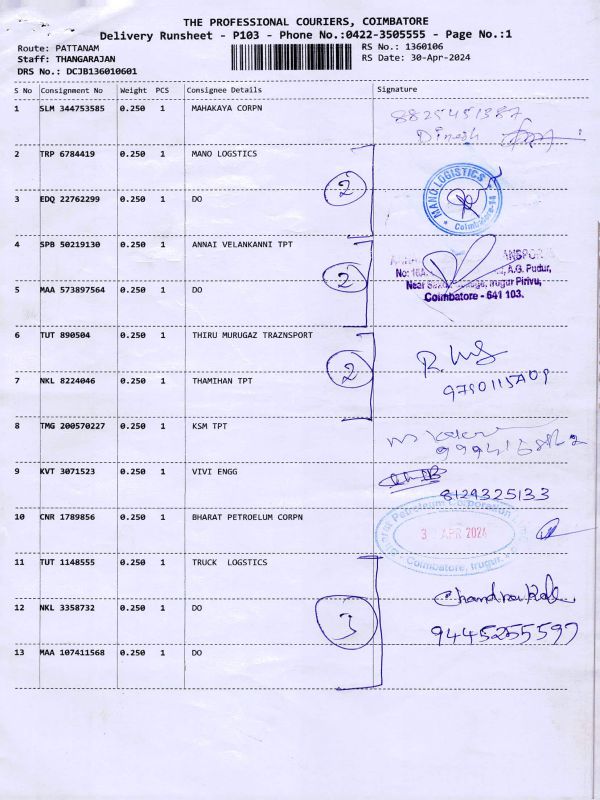 THE PROFESSIONAL COURIERS, COIMBATORE
Delivery Runsheet - P103 - Phone No.:0422-3505555 - Page No.:1
Route: PATTANAM RS No.: 1360106
Staff: THANGARAJAN RS Date: 30-Apr-2024
DRS No.: DCJB136010601
S No Consignment No Weight PCS Consignee Details Signature
1 SLM 344753585 0.250 1 MAHAKAYA CORPN
Dinesh
2 TRP 6784419 0.250 1 MANO LOGSTICS
2 MANO LOGISTICS Coimbatore-14
3 EDQ 22762299 0.250 1 DO
4 SPB 50219130 0.250 1 ANNAI VELANKANNI TPT
2 A.G. Pudur,
Irugur Pirivu,
Coimbatore - 641 103.
5 MAA 573897564 0.250 1 DO
6 TUT 890504 0.250 1 THIRU MURUGAZ TRAZNSPORT
2
7 NKL 8224046 0.250 1 THAMIHAN TPT
8 TMG 200570227 0.250 1 KSM TPT
9 KVT 3071523 0.250 1 VIVI ENGG
8129325133
10 CNR 1789856 0.250 1 BHARAT PETROELUM CORPN
Petroleum Corporation
APR 2024
Coimbatore, Irugur
11 TUT 1148555 0.250 1 TRUCK LOGSTICS
12 NKL 3358732 0.250 1 DO
3
9445255597
13 MAA 107411568 0.250 1 DO